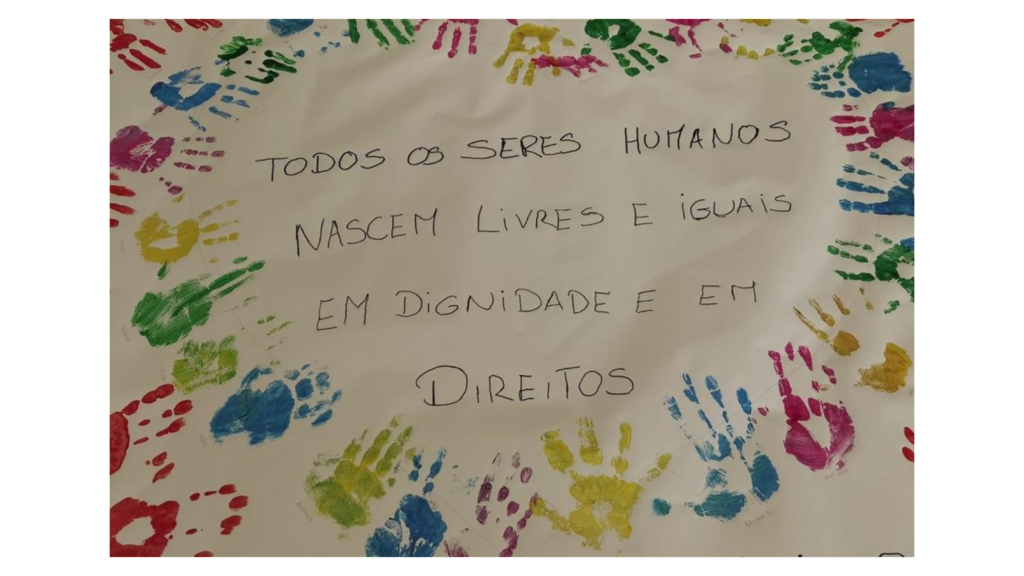 TODOS OS SERES HUMANOS
NASCEM LIVRES E IGUAIS
EM DIGNIDADE E EM
DIREITOS